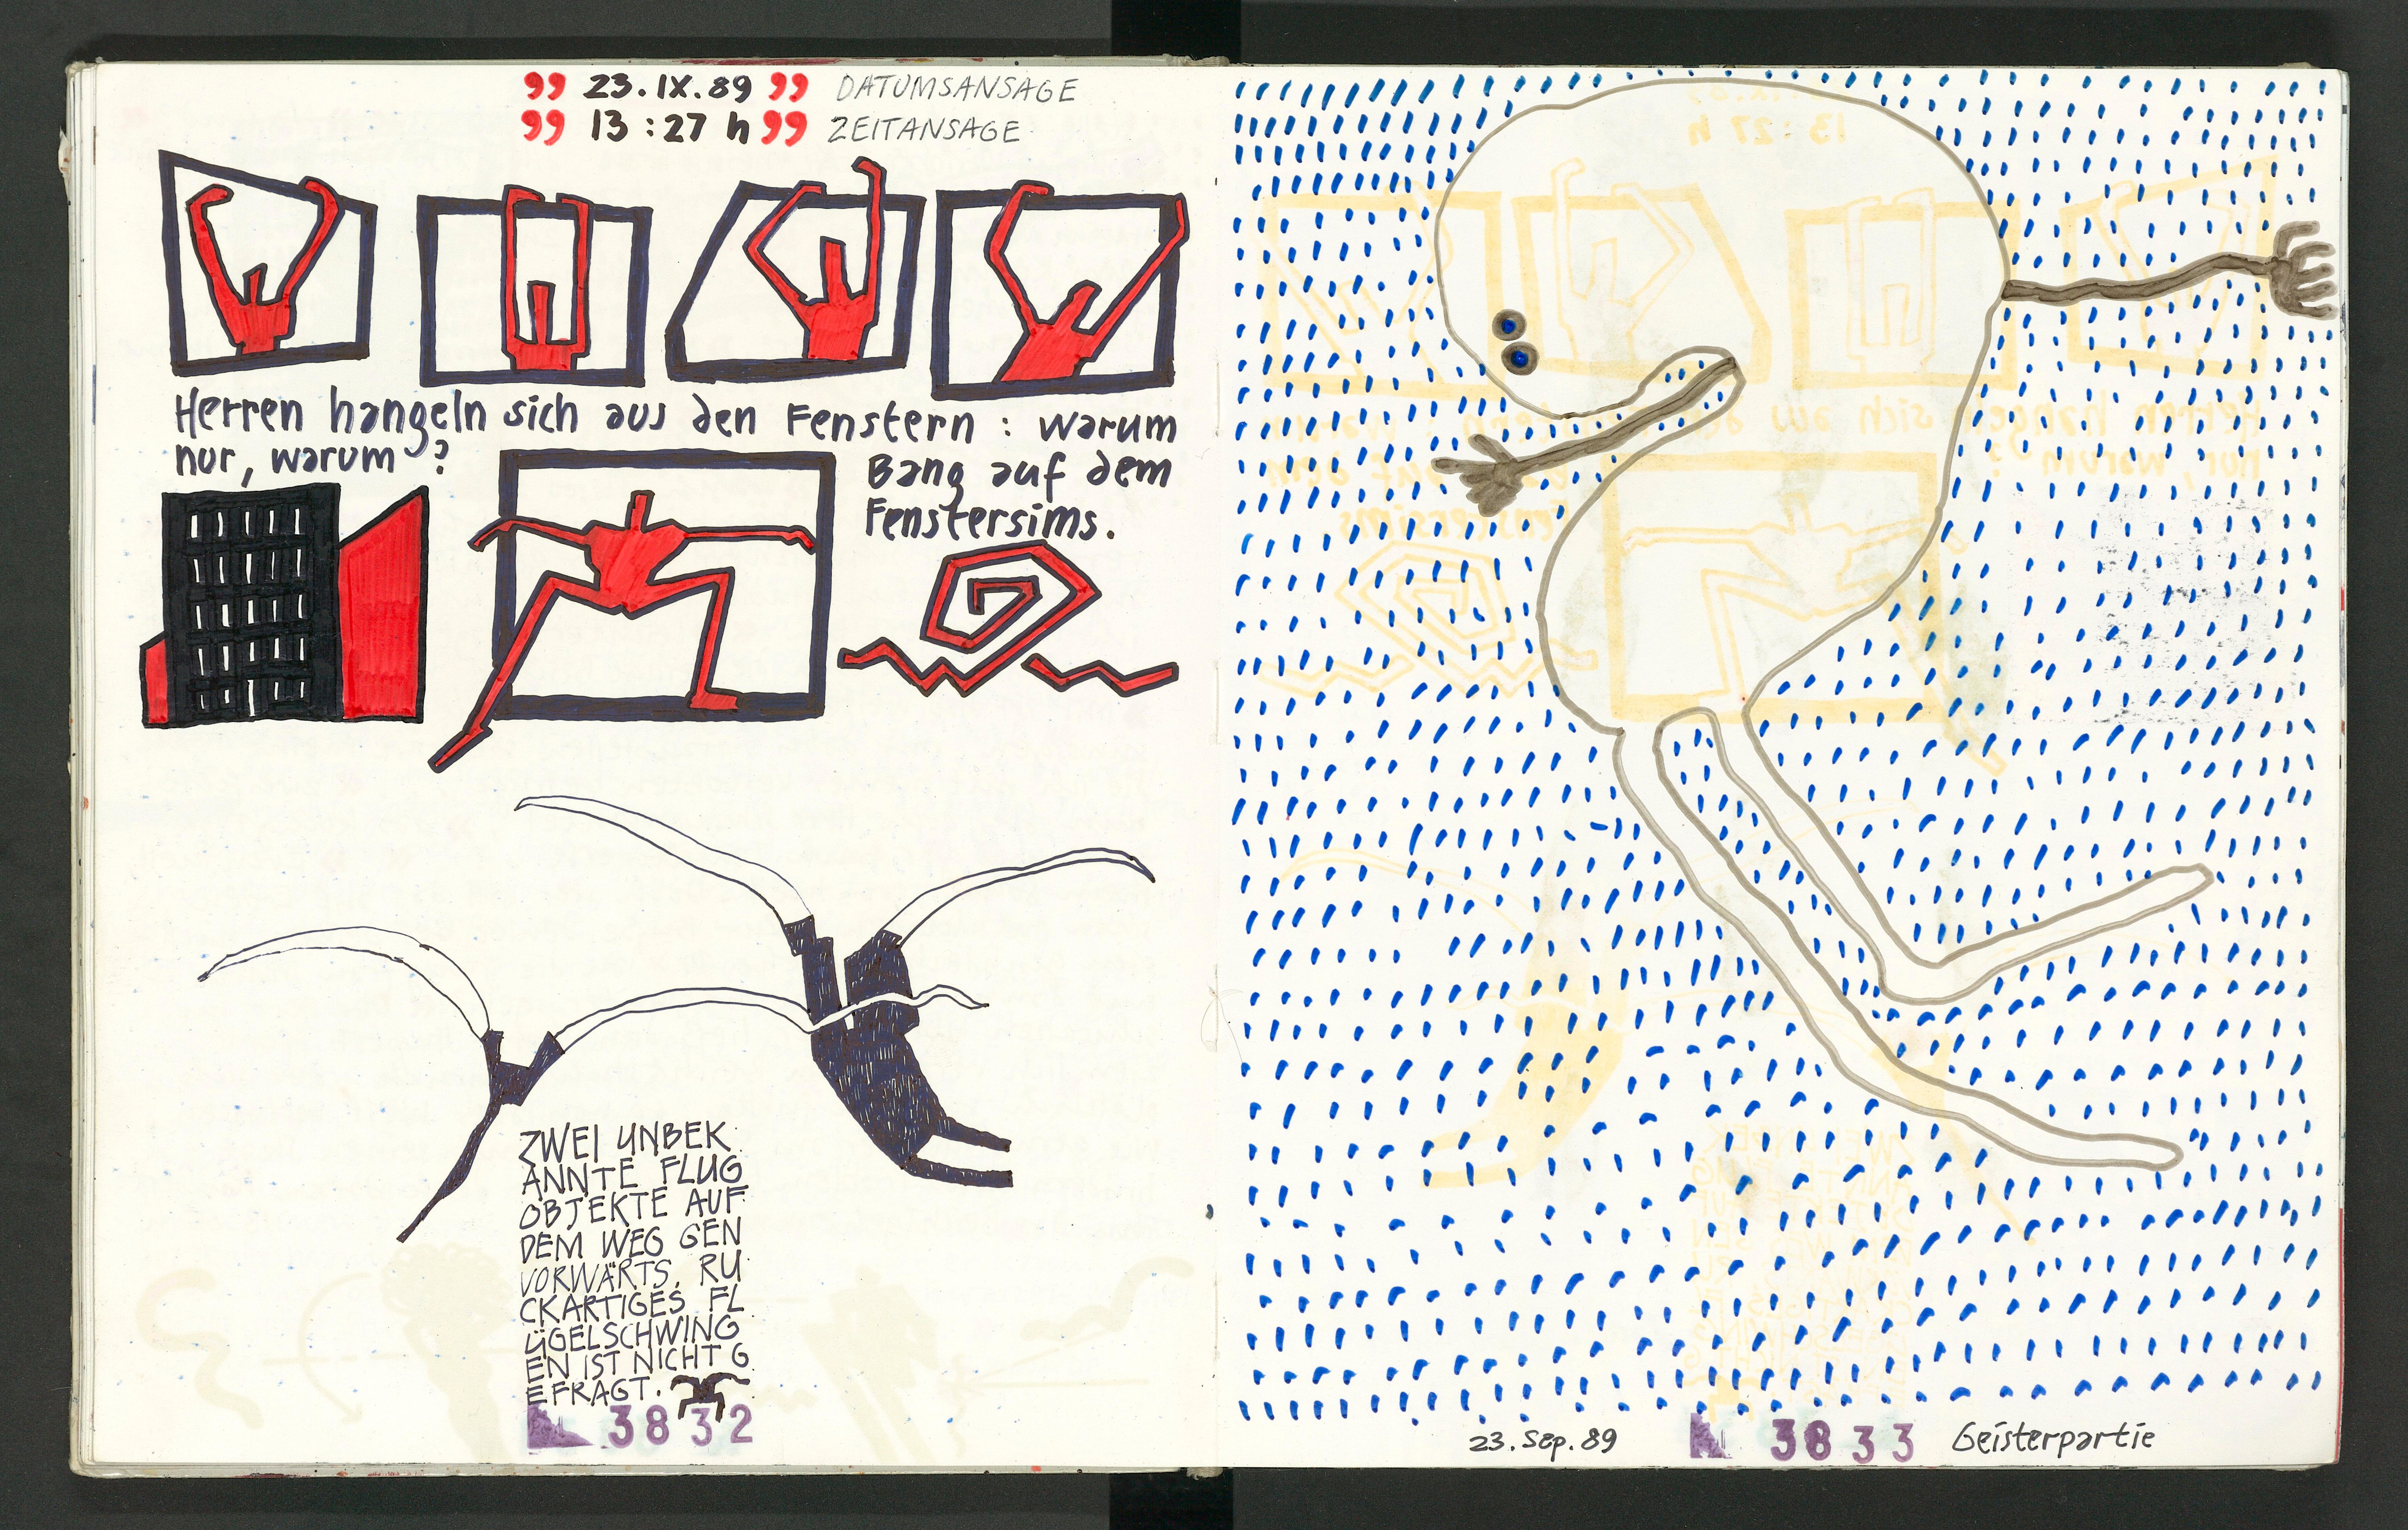 „ 23.IX.89 „ DATUMSANSAGE
„ 13:27 h „ ZEITANSAGE
Herren hangeln sich aus den Fenstern : warum
nur, warum ?
Bang auf dem
Fenstersims.
ZWEI UNBEK
ANNTE FLUG
OBJEKTE AUF
DEM WEG GEN
VORWÄRTS. RU
CKARTIGES FL
ÜGELSCHWING
EN IST NICHT G
EFRAGT.
3832
23. Sep. 89 3833 Geisterpartie